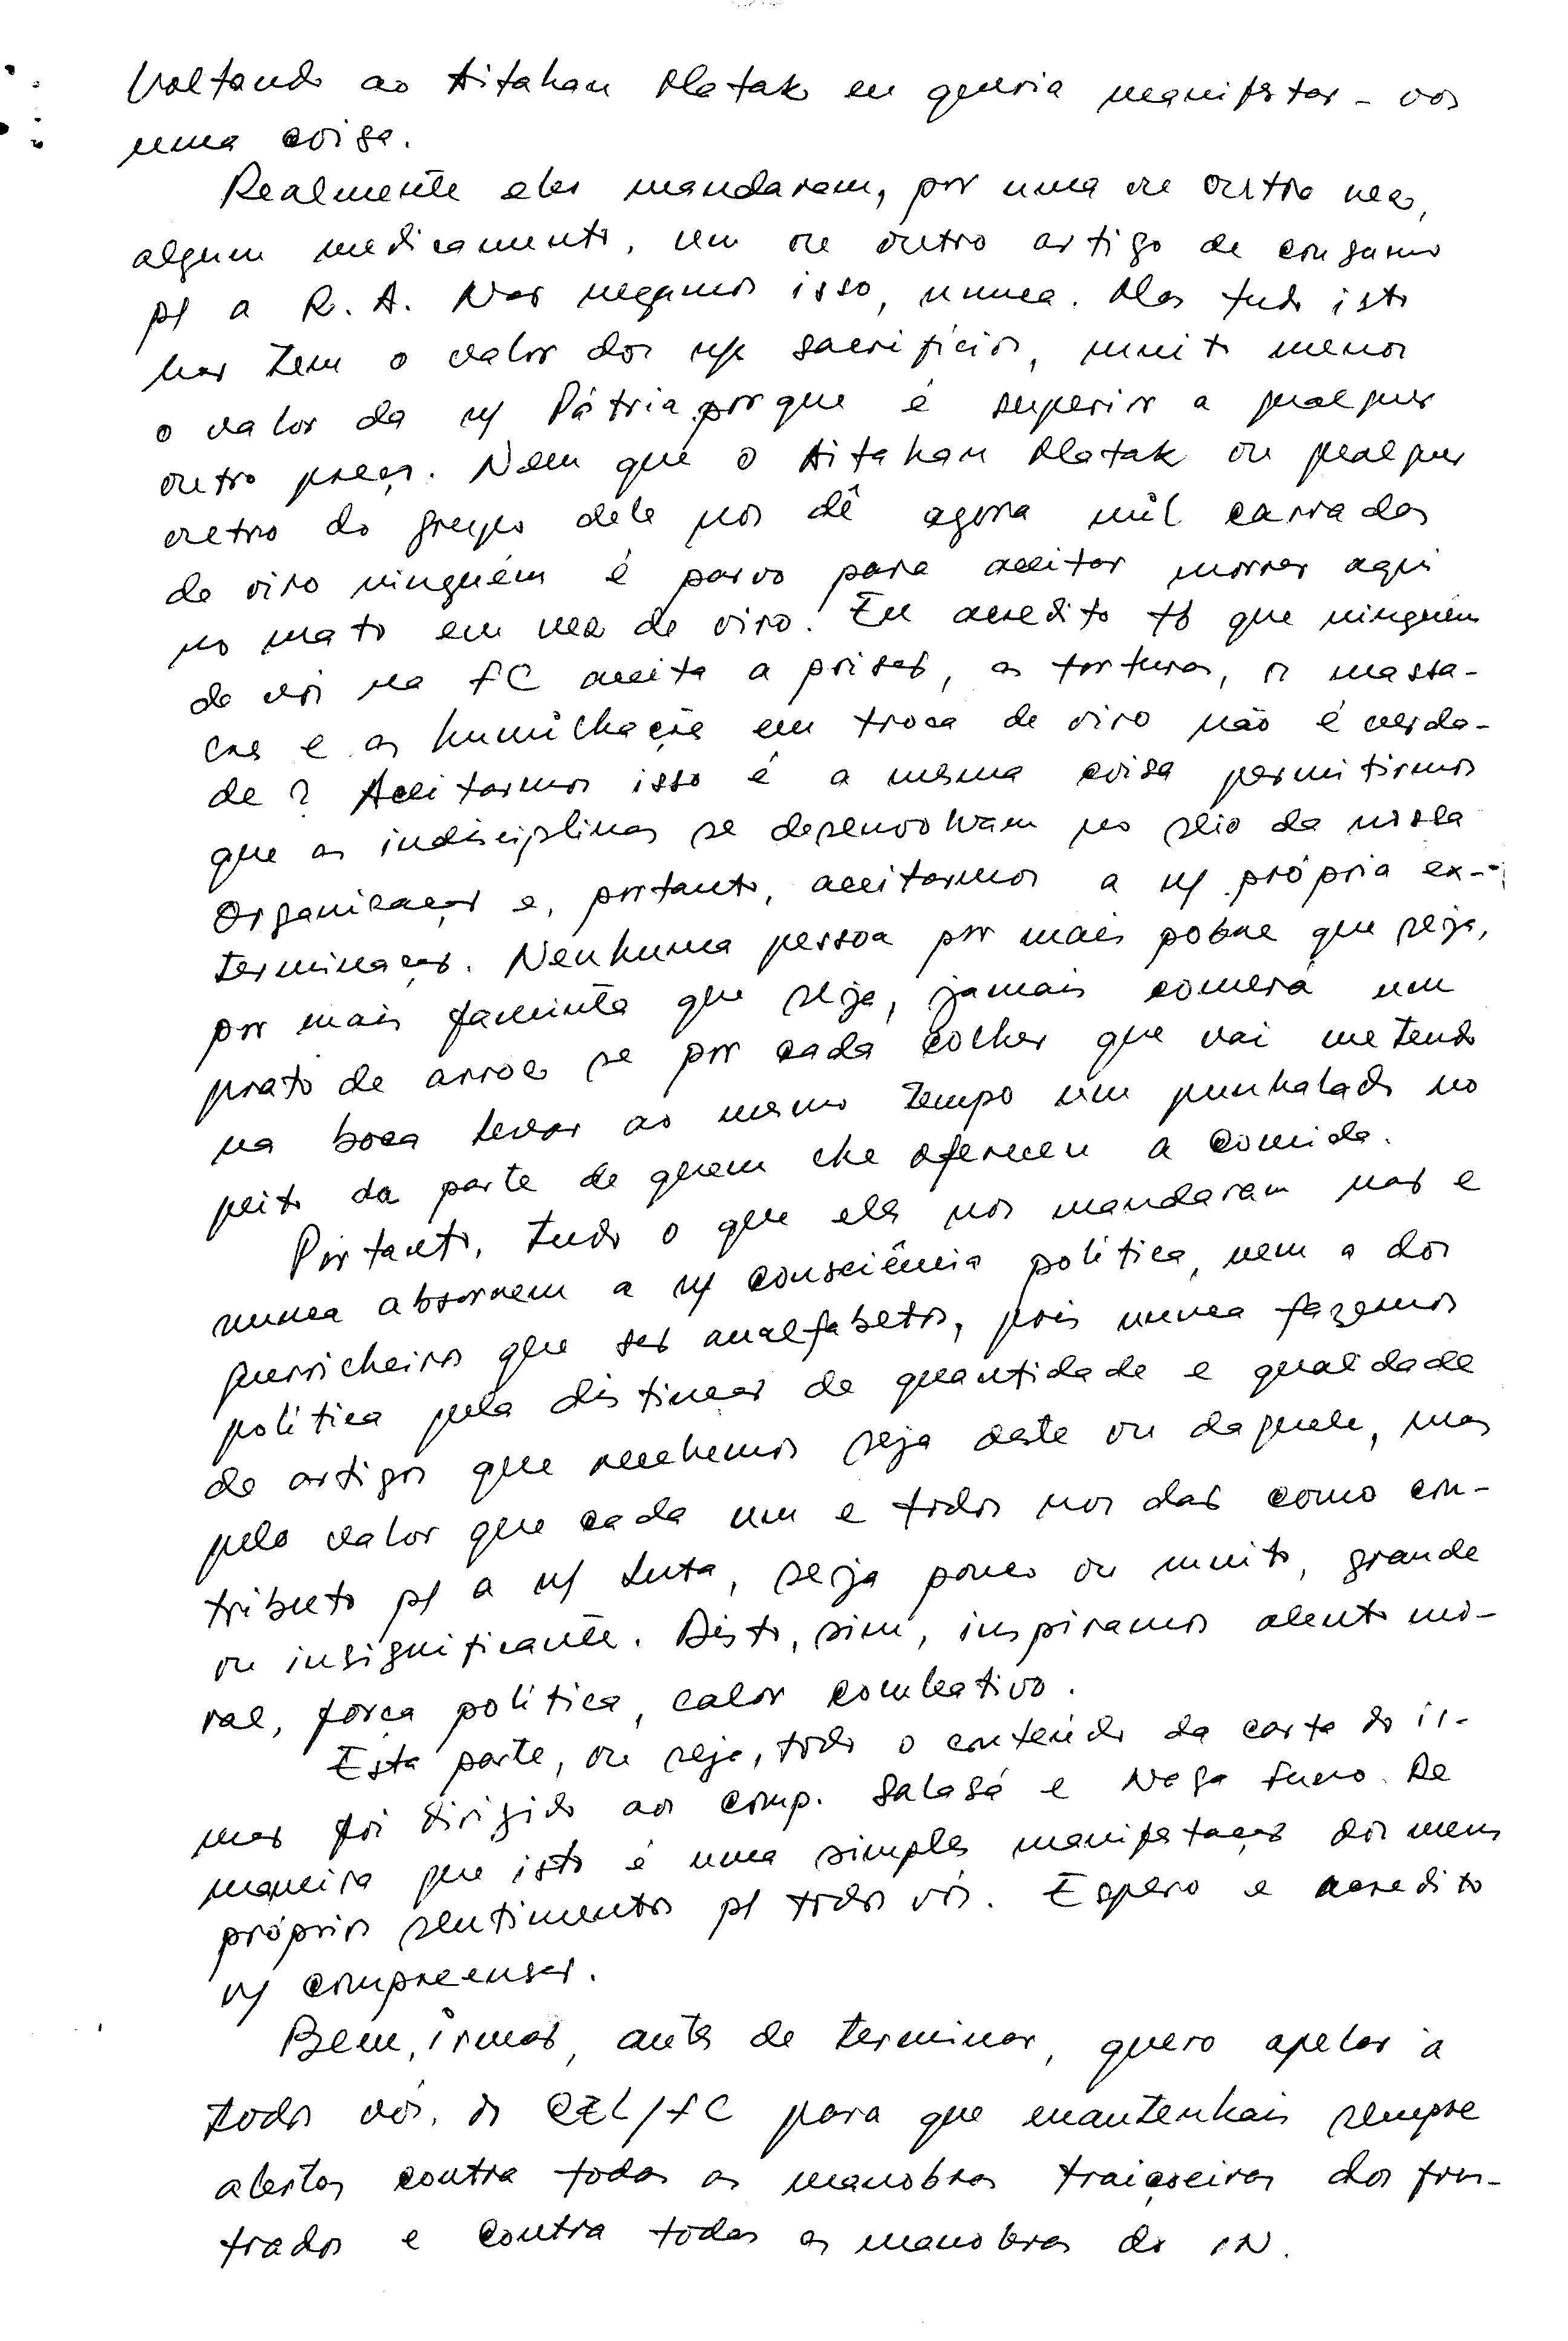 Voltando ao Aitahan Matak eu queria manifestar-vos
uma coisa.
Realmente eles mandaram, por uma ou outra vez,
algum medicamento, um ou outro artigo de consumo
p/ a R. A. Não negamos isso, nunca. Mas tudo isto
não tem o valor dos n/ sacrifícios, muito menos
o valor da n/ Pátria porque é superior a qualquer
outro preço. Nem que o Aitahan Matak ou qualquer
outro do grupo dele nos dê agora mil carradas
de ouro ninguém é parvo para aceitar morrer aqui
no mato em vez de ouro. Eu acredito tb que ninguém
de vós na FC aceita a prisão, as torturas, os massa-
cres e as humilhações em troca de ouro não é verda-
de? Aceitarmos isso é a mesma coisa permitirmos
que as indisciplinas se desenvolvam no seio da nossa
Organização e, portanto, aceitarmos a n/ própria ex-
terminação. Nenhuma pessoa por mais pobre que seja,
por mais faminta que seja, jamais comerá um
prato de arroz se por cada colher que vai metendo
na boca levar ao mesmo tempo um punhalado no
peito da parte de quem lhe ofereceu a comida.
Portanto, tudo o que eles nos mandaram não e
nunca absorvem a n/ consciência política, nem a dos
guerrilheiros que são analfabetos, pois nunca fazemos
política pela distinção de quantidade e qualidade
de artigos que recebemos seja deste ou daquele, mas
pelo valor que cada um e todos nos dão como con-
tributo p/ a n/ luta, seja pouco ou muito, grande
ou insignificante. Disto, sim, inspiramos alento mo-
ral, força política, calor combativo.
Esta parte, ou seja, todo o conteúdo da carta do ir-
mão foi dirigido aos comp. Salasá e Naga Funo. De
maneira que isto é uma simples manifestação dos meus
próprios sentimentos p/ todos vós. Espero e acredito
v/ compreensão.
Bem, irmãos, antes de terminar, quero apelar a
todos vós, os CEL/FC para que mantenhais sempre
alertas contra todas as manobras traiçoeiras dos frus-
trados e contra todas as manobras do IN.